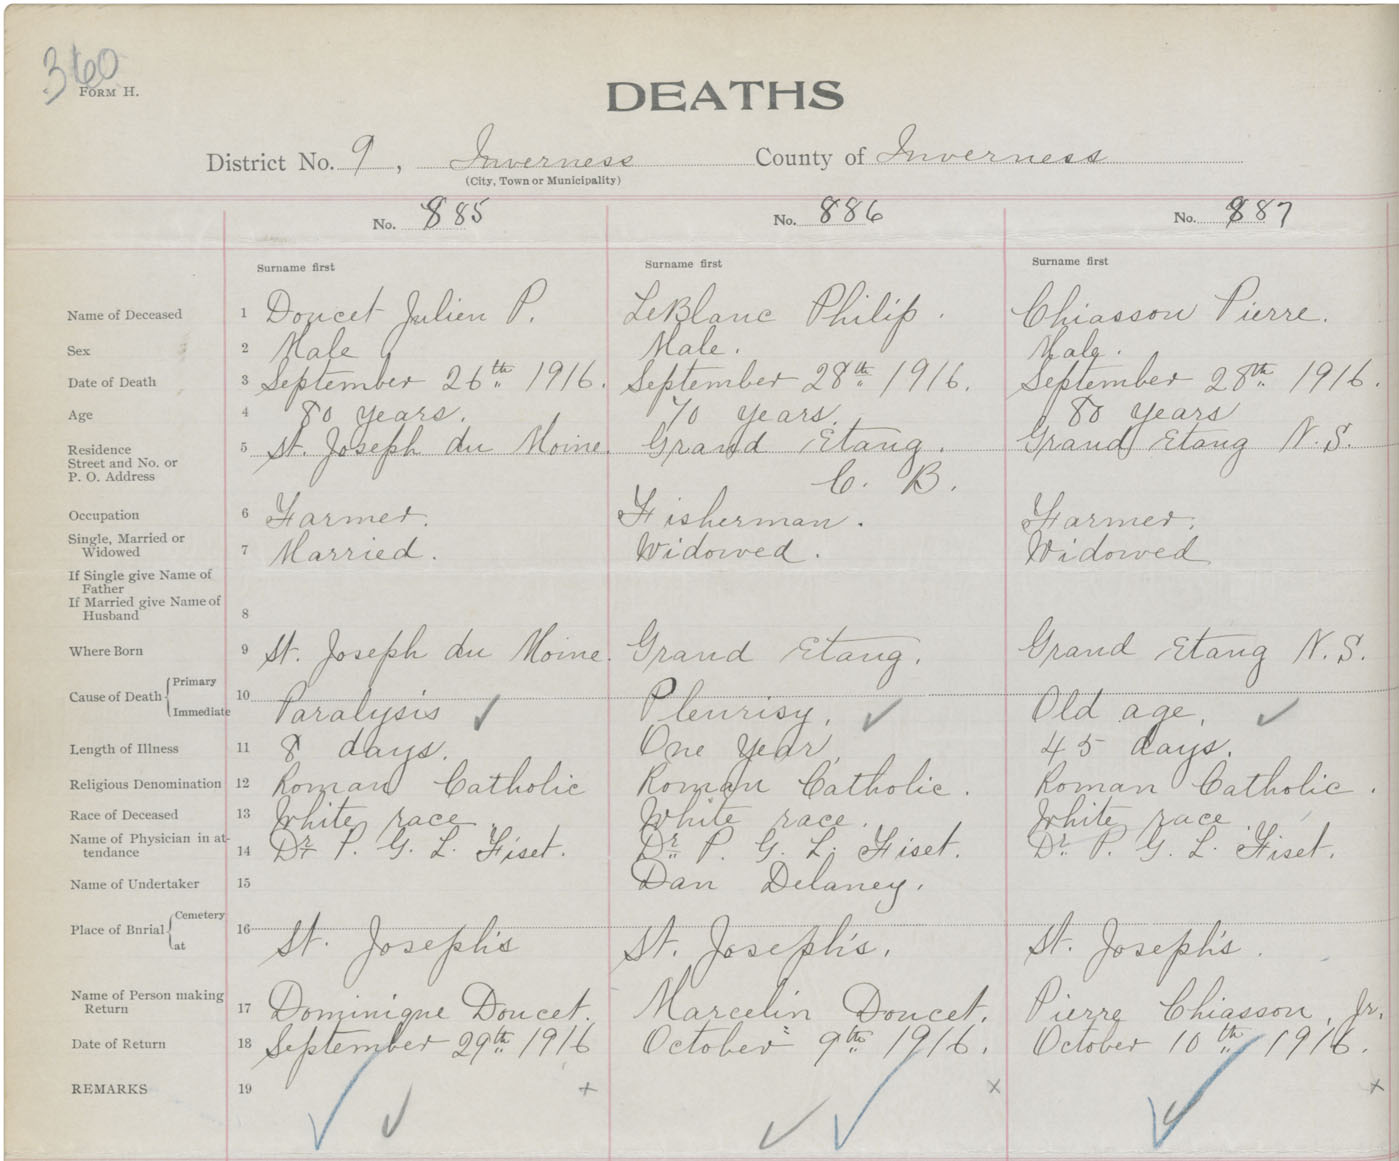 360
FORM H.
DEATHS
District No. 9, Inverness County of Inverness
(City, Town or Municipality)
No. 885 No. 886 No. 887
Surname first Surname first Surname first
Name of Deceased 1 Doucet Julien P. LeBlanc Philip. Chiasson Pierre.
Sex 2 Male Male. Male.
Date of Death 3 September 26th 1916. September 28th 1916. September 28th 1916.
Age 4 80 years. 70 years. 80 years
Residence 5 St. Joseph du Moine. Grand Etang. Grand Etang N.S.
Street and No. or
P. O. Address C. B.
Occupation 6 Farmer. Fisherman. Farmer.
Single, Married or
Widowed 7 Married. Widowed. Widowed
If Single give Name of
Father
If Married give Name of
Husband 8
Where Born 9 St. Joseph du Moine. Grand Etang. Grand Etang N.S.
Cause of Death { Primary 10
Immediate Paralysis Pleurisy. Old age.
Length of Illness 11 8 days. One Year. 45 days.
Religious Denomination 12 Roman Catholic Roman Catholic. Roman Catholic.
Race of Deceased 13 White race White race. White race
Name of Physician in at-
tendance 14 Dr. P. G. L. Fiset. Dr. P. G. L. Fiset. Dr. P. G. L. Fiset.
Name of Undertaker 15 Dan Delaney.
Place of Burial { Cemetery 16
at St. Joseph's St. Joseph's. St. Joseph's.
Name of Person making
Return 17 Dominique Doucet. Marcelin Doucet. Pierre Chiasson, Jr.
Date of Return 18 September 29th 1916 October 9th 1916. October 10th 1916.
REMARKS 19 + x x